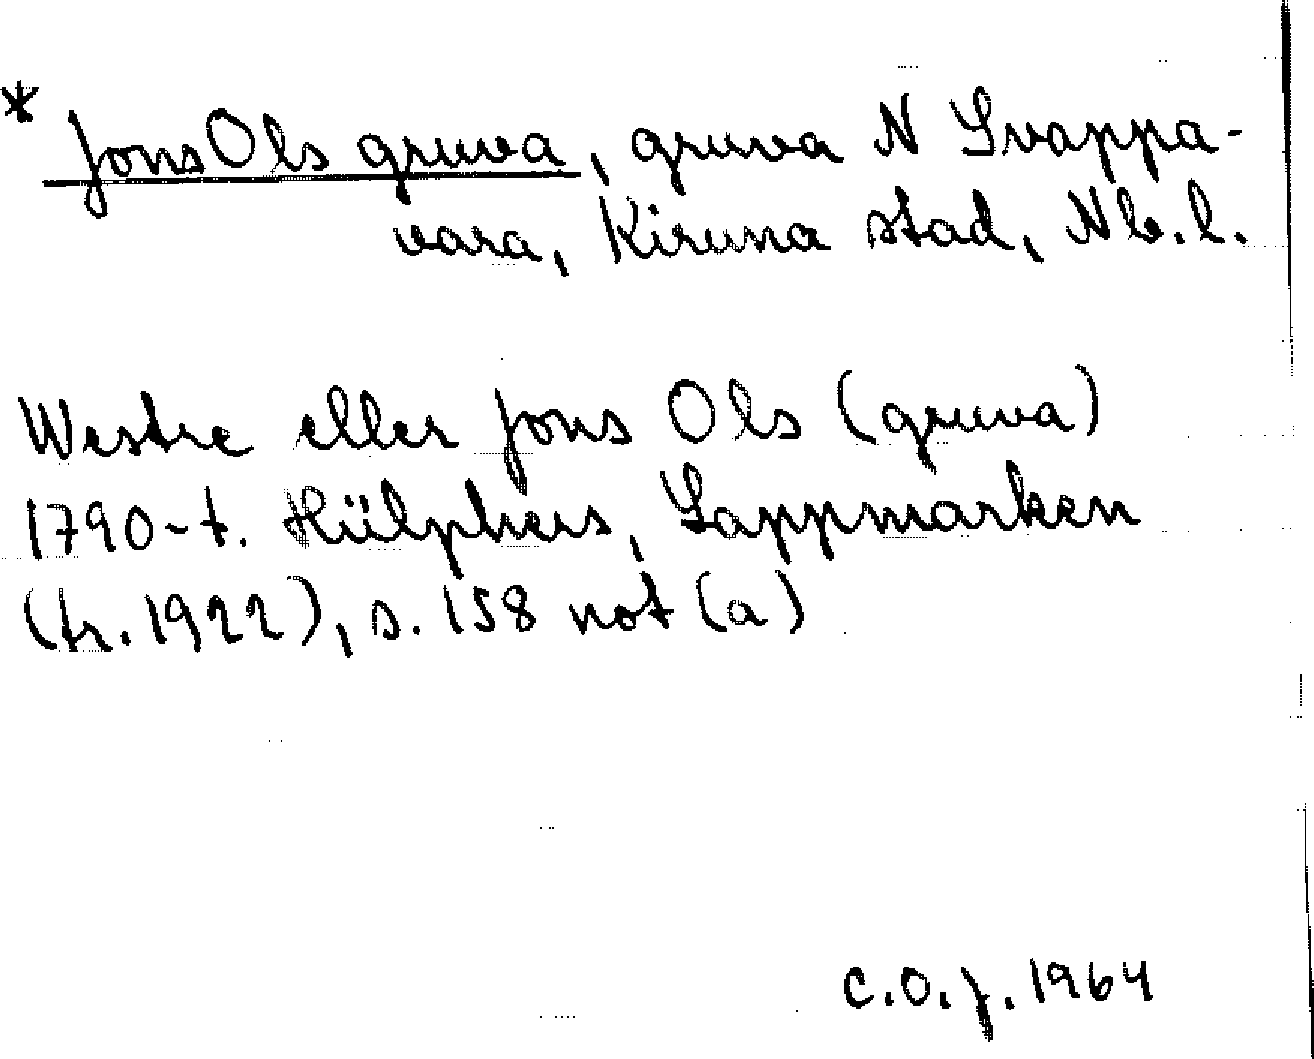 * Jons Ols gruva, gruva N Svappa-
vara, Kiruna stad, Nb.l.
Westre eller Jons Ols (gruva)
1790-t. Hülphers, Lappmarken
(tr. 1922), s. 158 not (a)
C.O.J. 1964